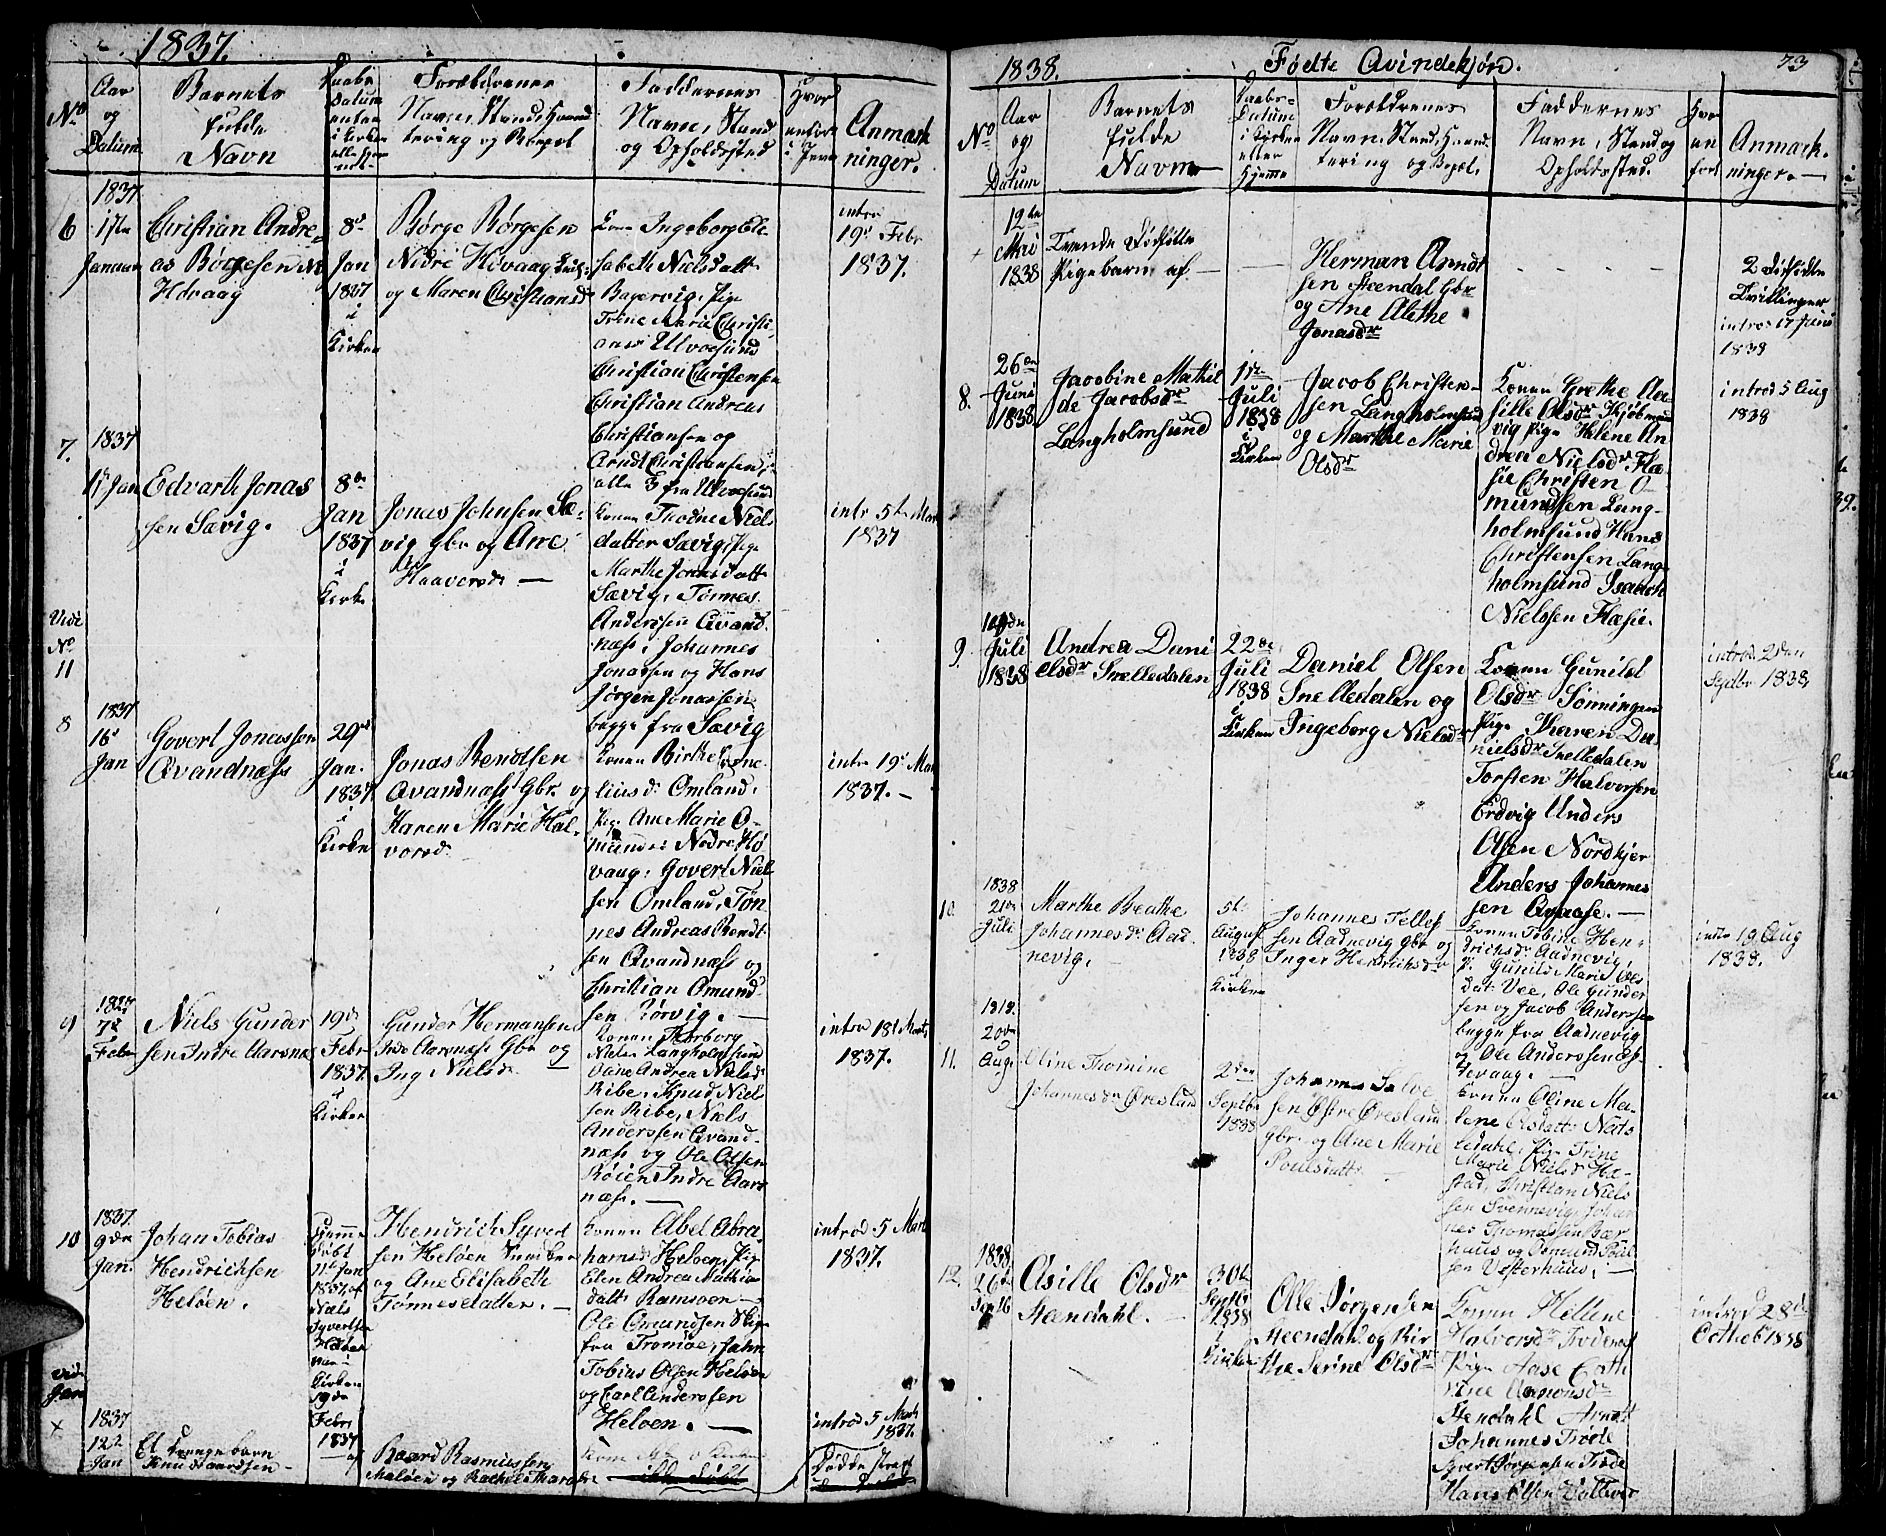 1837.
No
Aar
og
Datum
Barnets
fulde
Navn
Daabs
Datum
enten
i Kirken
eller Hjem
met
Forældrenes
Navn, Stand, Haand
tering og Bopæl
Faddernes
Navn, Stand
og Opholdssted
Hvor
anført
i Jevn
Anmærk
ninger.
1837
6
1ste
Januar
Christian Andre
as Børgesen N
Høvaag
8de
Jan
1837
i
Kirken
Børge Børgesen
Nedre Høvaag
og Maren Christiansd
Kone Ingeborg Ele
sabeth Nielsdatt
Bagervig, Pige
Trine Marie Christi
Ulvøesund
Christian Christensen
Christian Andreas
Christiansen og
Arndt Christiansen
alle 3 fra Ulvøesund
intro
19d Febr
1837.
7.
1837
1ste Jan
Edvarth Jonas
sen Sævig.
8de
Jan
1837
i
Kirke
Jonas Johnsen Sæ
vig Gbr og Ane
Haaversd. —
Konen Thodne Niels
datter Sævig, Pige
Marthe Jonasdatt
Sævig, Tønnes
Anderssen Qvand
næss, Johannes
Jonassen og Hans
Jørgen Jonassen
begge fra Sævig
intr 5te Mart
1837
Vide
No
11
8
1837
16d
Jan
Govert Jonassen
Qvandnæss
29de
Jan.
1837
i
Kirke
Jonas Bendtsen
Qvandnæss Gbr og
Karen Marie Hal
vorsd
Konen Birthe Corne
liusd Omland,
Pige Ane Marie O
mundsd Nedre Hø
vaag, Govert Niel
sen Omland, Tøn
nes Andreas Bendt
sen Qvandnæss og
Christian Omund
sen Rørvig. —
intro 19d Mart
1837. —
9
1837
7d
Febr
Niels Gunder
sen Indre Aarsnæs
19de
Febr
1837
i
Kirken
Gunder Hermansen
Indr Aarsnæss Gbr og
Ing Nielsd
Konen Thorborg
Nielsd Langholmsund
Andrea Nielsd
Ribe, Knud Niel
sen Ribe, Niels
Anderssen Qvand
næss og Ole Olsen
Røien Indre Aars
næss. —
intro 18d Marts
1837.
10
1837.
9de
Jan.
Johan Tobias
Hendrichsen
Heløen.
Hjemme
døbt
11te Jan
1837, af
Niels
Syvertsen
Heløen
i
Kirken
19de
Febr
1837
Hendrich Syvert
sen Heløen
og Ane Elisabeth
Tønnesdatter. —
Konen Abel Abra
hamsd Heløen, Pig
Elen Andrea Mathia
datt Ramsøen —
Ole Omundsen
fra Tromøe, Jahn
Tobias Olsen Heløen
og Carl Andersen
Heløen. —
introd 5 Mart
1837.
vide
Jan
×
1837
12d
Jan
Et Drengebarn
Knud Baardsen —
— af
Baard Rasmussen
Maløen og Rachel
introd 5 Mart
1837.
1838.
Fødte Qvindekjøn.
73
No
Aar
og
Datum
Barnets
fulde
Navn
Daabs-
Datum
i Kirken
eller
Hjemme
Forældrenes
Navn, Stand, Haand
tering og Bopæl,
Faddernes
Navn, Stand og
Opholdssted.
Hvor
an
ført
Anmærk.
ninger. —
+
12te
Mai
1838
Tvende Dødfødte
Pigebarn af —
Herman Arndt
sen Steendal Gbr
og Ane Alethe
Jonasdr
2 Dødfødte
Tvillinger
introd 17 Juni
1838
8.
26de
Juni
1838
Jacobine Mathil
de Jacobsdr
Langholmsund
1ste
Juli
1838
i
Kirken
Jacob Christen-
sen Langholmsund
og Marthe Marie
Olsdr
Konen Grethe Aa
sille Olsdr Kjøbman
vig Pige Helene An
drea Nielsdr Flæ
sie Christen O
mundsen Lang-
holmsund Hans
Christensen Lang
holmsund Isaach
Nielssen Flæsie.
introd 5 Aug
1838
9.
Juli
1838
Andrea Dani
elsdr Snelledalen
22de
Juli
1838
i
Kirken
Daniel Olsen
Snelledalen og
Ingeborg Nielsdr
Konen Gunild
Olsdr Sønningen
Pige Karen Da
nielsdr Snelledalen
Torsten Halvorsen
Erdvig Anders
Olsen Nordkjer
Anders Johannes
sen Qvaase. —
introd. 2den
Septbr 1838,
10.
1838
21de
Juli
Marthe Beathe
Johannesdr Aad
nevig.
5te
August
1838
i
Kirken
Johannes Tellef
sen Aadnevig Gbr og
Inger Hendrichsdr
Konen Tobine Hen
drichsdr Aadnevig,
P. Gunild Marie Ols
dat. Vee, Ole Gunder
sen og Jacob Anderssen
begge fra Aadnevig
og Ole Anderssen
Hevaag. —
intro 19 Aug
1838.
11.
1838.
20de
Aug.
Oline Thomine
Johannesdr Øresland
2den
Septbr
1838
Johannes Salve
sen Østre Øresland
Gbr. og Ane Marie
Poulsdatt.
Konen Oline Ma-
lene Olsdatt.
ledahl, Pige Trine
Marie Nielsd
Christian Niels
sen Svennevig, Johan
nes Thomassen Bær
haus og Osmund Poul
sen Vesterhuus. —
12.
1838.
26de
Sept
Asille Olsdr
Steendahl. —
30te
Septbr
1838
i
Kirken
Olle Jørgensen
Steendahl og Bir
the Serine Olsdr
Konen Hellene
Halvorsdr Trødenæs
Pige Aase Cath
rine Aamonsdr
Stendahl Arndt
Johannes Trøde
Syvert Jørgensen Trøde
Hans Olsen
introd 28de
Octbr 1838